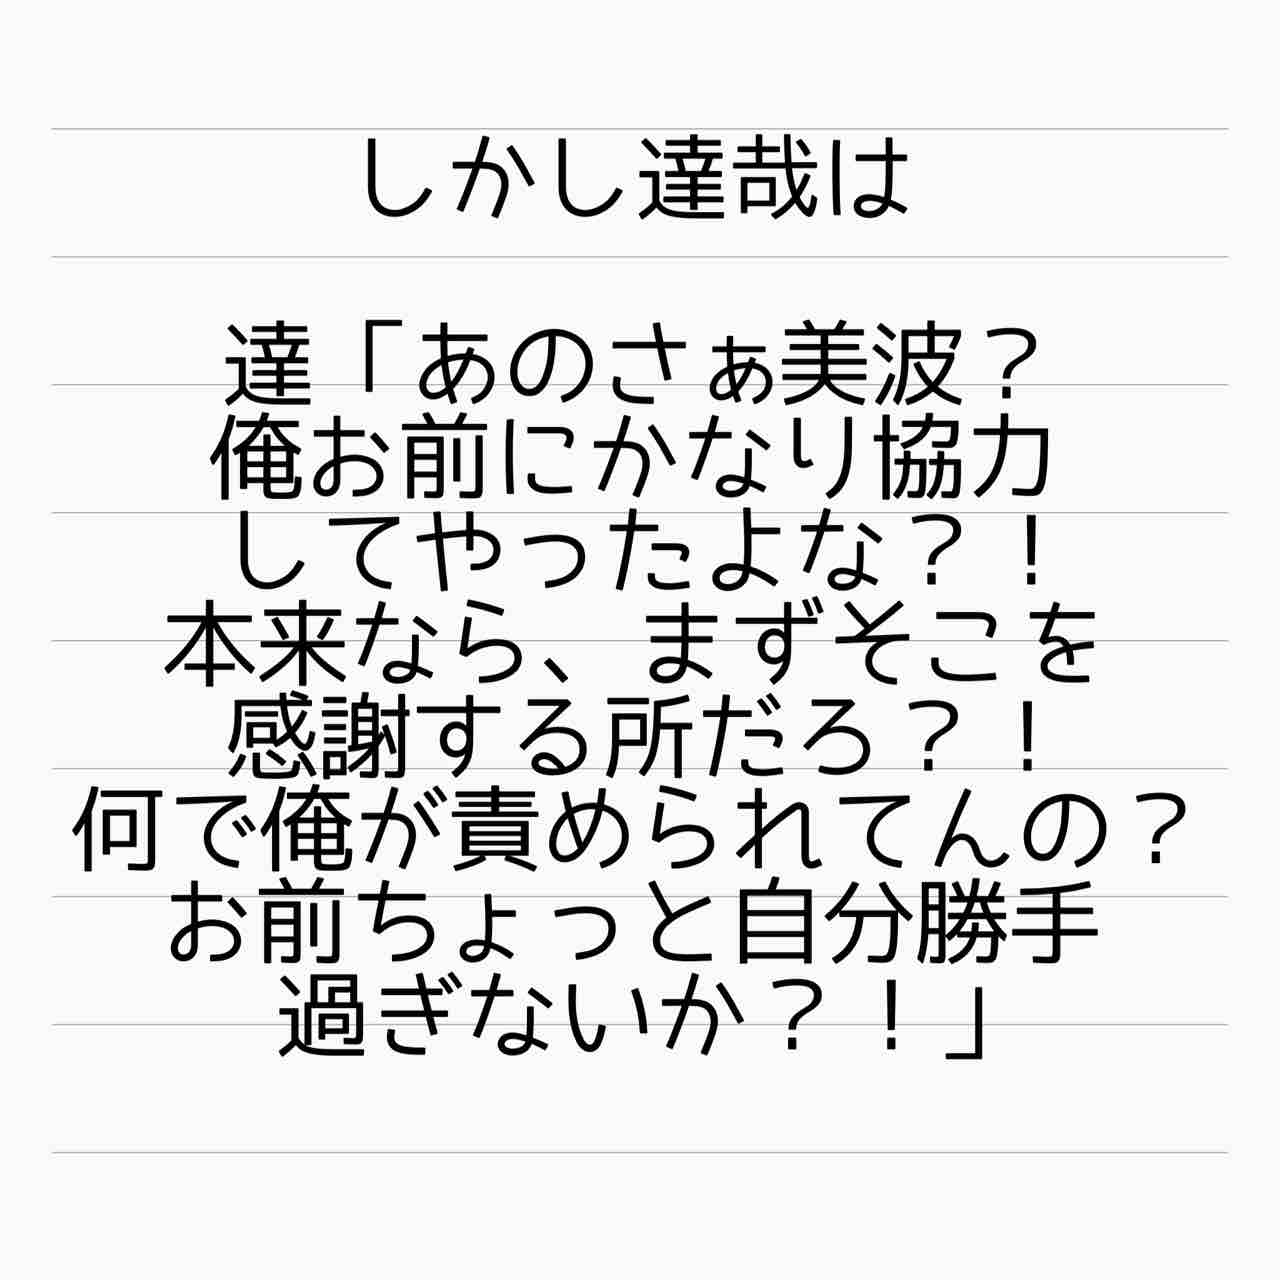 しかし達哉は
達「あのさぁ美波？
俺お前にかなり協力
してやったよな？！
本来なら、まずそこを
感謝する所だろ？！
何で俺が責められてんの？
お前ちょっと自分勝手
過ぎないか？！」